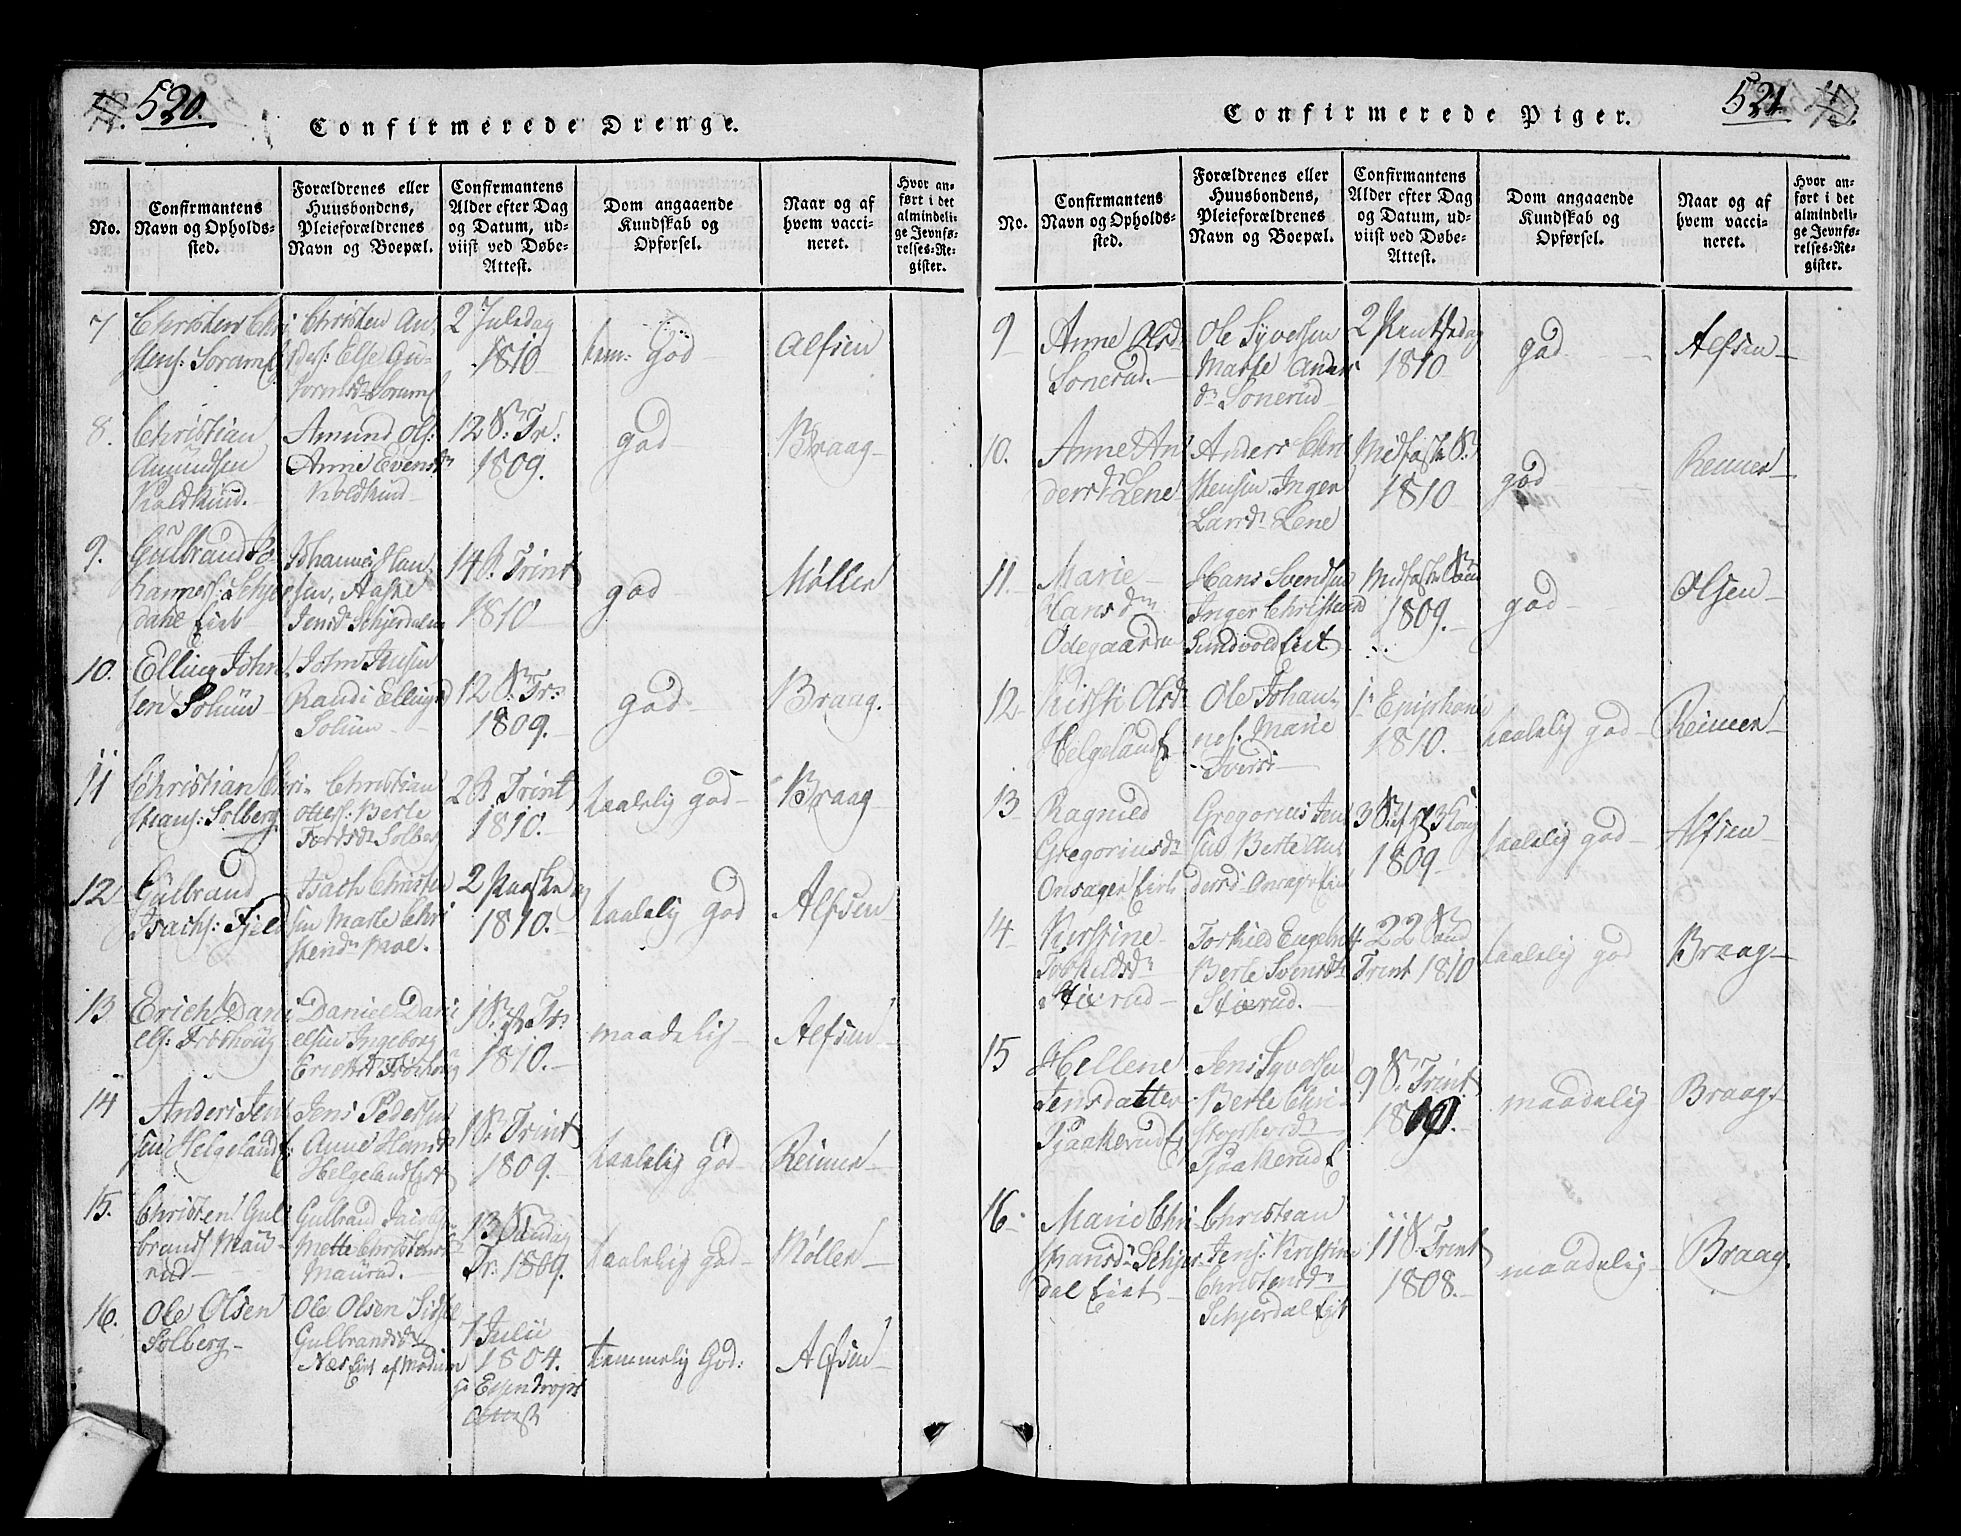 520.
Confirmerede Drenge.
No.
Confirmantens Navn og Opholds-sted.
Forældrenes eller Huusbondens, Pleieforældrenes Navn og Boepæl.
Confirmantens Alder efter Dag og Datum, ud-viist ved Døbe-Attest.
Dom angaaende Kundskab og Opførsel.
Naar og af hvem vacci-neret.
Hvor an-ført i det almindeli-ge Jevnfø-relses-Re-gister.
7
Christen Chri
stens:
Christen An
ders: Else Gu-
2 Juledag
1810
tem: God
Alfsen
8.
Christian
Amundsen
Koldkind.
Amund Ols:
Anne Evensdr
Koldkind
12 S. Tr:
1809.
god
Braag
9.
Gulbrand Jo
hanness: Schjer
dahl Eie
Johannes Han
sen, Aaske
Jensd Schjerdalen
14 S. Trint
1810
god
Møller
10.
Elling John
sen Solum
John Jensen
Randi Ellingsd
Solum
12 S. Tr:
1809.
god
Braag.
11
Christian Chri-
stians: Solberg
Christian
Ottess: Berte
Solberg
2 S. Trint
1810.
taalelig god
Braag
12
Gulbrand
Isachs: Fjeld
Isach Christen
sen Marte Chri
stensdr Moe.
2 Paaskedag
1810.
taalelig god
Alfsen
13
Erich Dani
els: Frøshoug
Daniel Dani
elsen Ingeborg
Ericsd Frøshoug
1 S. Tr:
1810.
maadelig
Alfsen
14
Anders Jen
sen Helgeland E:
Jens Pedersen
Anne Hansd
Helgeland Eiet
1 S. Trint
1809.
taalelig god
Reimer
15.
Christen Gul
brands Mau-
rud
Gulbrand Jacobs
Mette Christensd
Maurud.
13 Søndag
Tr: 1809.
taalelig god
Møller
16.
Ole Olsen
Solberg
Ole Olsen Sidsel
Gulbrandsdr
Næs Eiet af Modum
7 Julii
1804.
Essendrops
Attest
temmelig God:
Alfsen
521.
Confirmerede Piger.
No.
Confirmantens Navn og Opholds-sted.
Forældrenes eller Huusbondens, Pleieforældrenes Navn og Boepæl.
Confirmantens Alder efter Dag og Datum, ud-viist ved Døbe-Attest.
Dom angaaende Kundskab og Opførsel.
Naar og af hvem vacci-neret.
Hvor an-ført i det almindeli-ge Jevnfø-relses-Re-gister.
9
Anne Olsd
Sonerud.
Ole Syversen
Marte Anders
dr Sonerud
2 Pintsedag
1810
god
Alfsen
10.
Anne An
dersdr Lene
Anders Chri
stensen Inger
Larsdr Lene
Midfaste S.
1810
god
Reimer
11.
Marie
Hansdr
Ødegaarden
Hans Svendsen
Inger Christensd
Sundvold Eiet
Midfaste Søn
1809.
god
Olsen
12
Kirsti Olsd
Helgeland E
Ole Johan-
nes. Marie
Iversd
1 Epiphania
1810.
taalelig god
Reimer
13
Ragnild
Gregoriusdr
Onsager Eie
Gregorius Jen
sen Berte An
dersd Onsager Eie
1809
taalelig god
Alfsen
14
Kirstine
Torkildsdr
Stixrud
Torkild Engebret
Berte Svensdr
Stixrud.
22 Sønd
Trint 1810
taalelig god
Braag
15
Hellene
Jensdatter
Pjaakerud E
Jens Syversen
Berte Chri-
stophersdr
Pjaakerud E
9 S. Trint
1810.
maadelig
Braag
16
Marie Chri
stiansdr Schjer
dal Eiet
Christian
Jens: Kirstine
Christensdr
Schjerdal Eiet
11 S. Trint
1808.
maadelig
Braag.